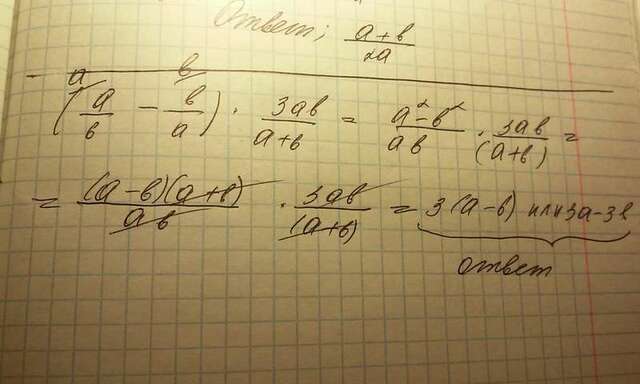 Ответ; (a+b)/(2a)
a b
(a/b − b/a) · 3ab/(a+b) = (a²−b²)/(ab) · 3ab/(a+b) =
= (a−b)(a+b)/(ab) · 3ab/(a+b) = 3(a−b) или 3a−3b
ответ